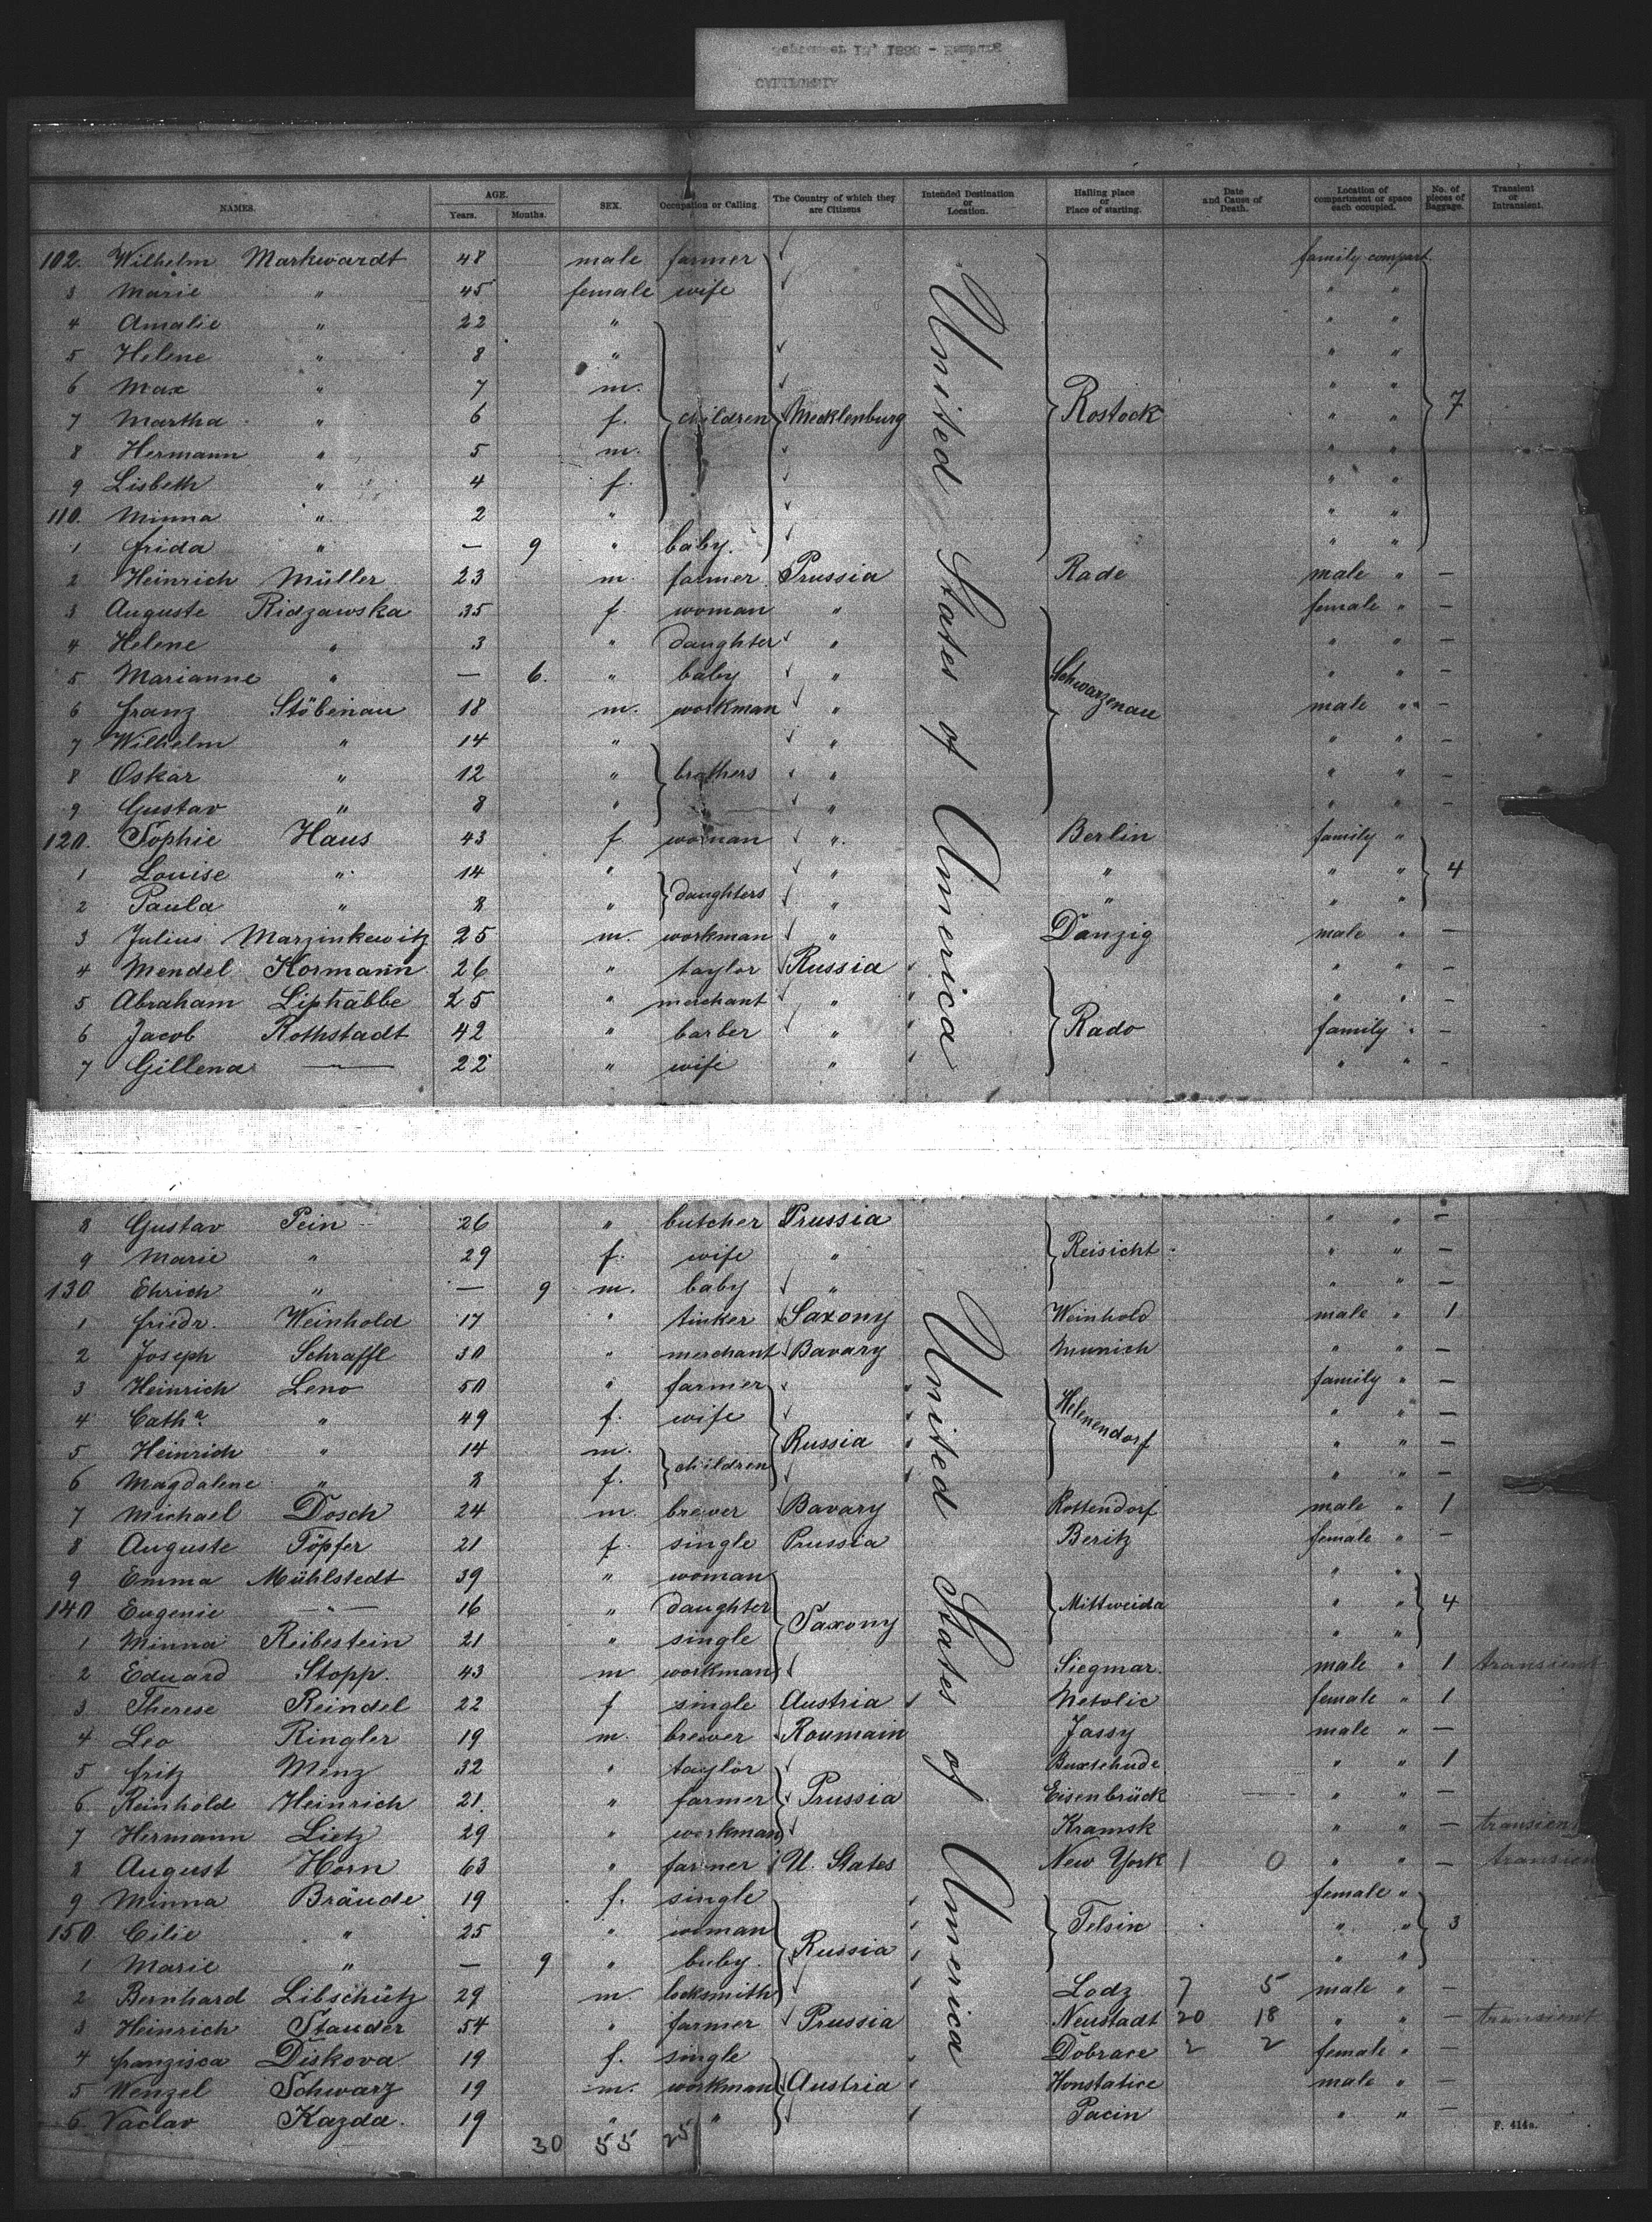 NAMES. AGE. Years. Months. SEX. Occupation or Calling The Country of which they are Citizens Intended Destination or Location. Hailing place or Place of starting. Date and Cause of Death. Location of compartment or space each occupied. No. of pieces of Baggage. Transient or Intransient.
102. Wilhelm Markwardt 48 male farmer family compart.
3 Marie " 45 female wife " "
4 Amalie " 22 " " "
5 Helene " 8 " " "
6 Max " 7 m. " "
7 Martha " 6 f. children Mecklenburg Rostock " " 7
8 Hermann " 5 m. " "
9 Lisbeth " 4 f. " "
110. Minna " 2 " " "
1 Frida " — 9 " baby. " "
2 Heinrich Müller 23 m. farmer Prussia Rade male " —
3 Auguste Ridzawska 35 f woman " female " —
4 Helene " 3 " daughter " " " —
5 Marianne " — 6. " baby " Schwarzenau " " —
6 Franz Stöbenau 18 m. workman " male " —
7 Wilhelm " 14 " " " " —
8 Oskar " 12 " brothers " " " —
9 Gustav " 8 " " " " —
120. Sophie Haus 43 f woman " Berlin family "
1 Louise " 14 " daughters " " " " 4
2 Paula " 8 " " " " "
3 Julius Marzinkewitz 25 m. workman " Danzig male " —
4 Mendel Kormann 26 " taylor Russia " " —
5 Abraham Liphabbe 25 " merchant " " " —
6 Jacob Rothstadt 42 " barber " Rado family " —
7 Gillena — 22 " wife " " " —
United States of America
8 Gustav Pein 26 " butcher Prussia " " —
9 Marie " 29 f. wife " Reisicht " " —
130 Ehrich " — 9 m. baby " " " —
1 Friedr. Weinhold 17 " tinker Saxony Weinhold male " 1
2 Joseph Schraffl 30 " merchant Bavary Munich " " —
3 Heinrich Leno 50 " farmer family " —
4 Cath.a " 49 f. wife Helenendorf " " —
5 Heinrich " 14 m. children Russia " " —
6 Magdalene " 8 f. " " —
7 Michael Dosch 24 m. brewer Bavary Rottendorf male " 1
8 Auguste Töpfer 21 f. single Prussia Beritz female " —
9 Emma Mühlstedt 39 " woman " "
140 Eugenie — " — 16 " daughter Saxony Mittweida " " 4
1 Minna Reibestein 21 " single " "
2 Eduard Stopp. 43 m workman Siegmar. male " 1 transient
3 Therese Reindel 22 f single Austria Netolic female " 1
4 Leo Ringler 19 m. brewer Roumain Jassy male " —
5 Fritz Menz 32 " taylor Buxtehude " " 1
6 Reinhold Heinrich 21. " farmer Prussia Eisenbrück " " —
7 Hermann Lietz 29 " workman Kramsk " " — transient
8 August Horn 63 " farmer U. States New York 1 0 " " — transient
9 Minna Bräude 19 f. single female "
150. Cilie " 25 " woman Telsin " " 3
1 Marie " — 9 " baby. Russia " "
2 Bernhard Libschütz 29 m. locksmith Lodz 7 5 male " —
3 Heinrich Stauder 54 " farmer Prussia Neustadt 20 18 " " — transient
4 Franzisca Diskova 19 f. single Dobrace 2 2 female " —
5 Wenzel Schwarz 19 m. workman Austria Honstatice male " —
6 Vaclav Kazda. 19 " " Pacin " " —
United States of America
30 55 25
F. 414a.